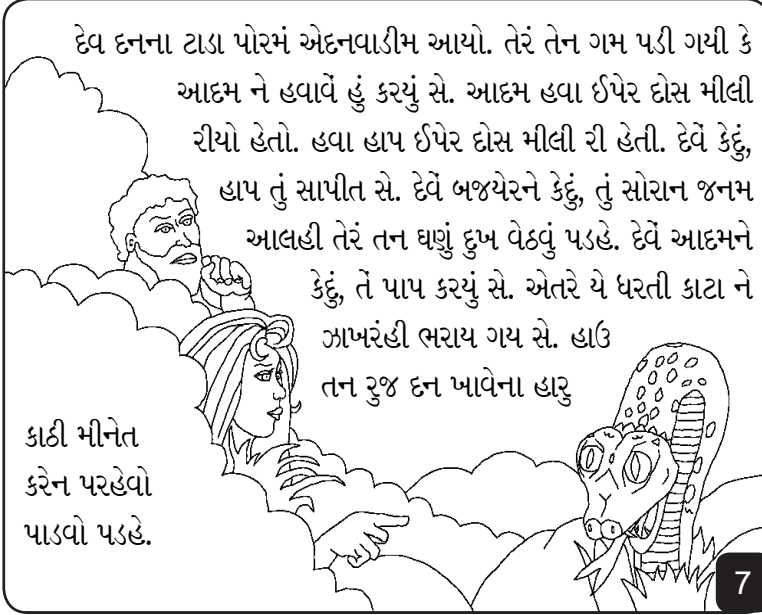 દેવ દનના ટાડા પોરમં એદનવાડીમ આયો. તેરં તેન ગમ પડી ગયી કે
આદમ ને હવાવેં હું કરયું સે. આદમ હવા ઈપેર દોસ મીલી
રીયો હેતો. હવા હાપ ઈપેર દોસ મીલી રી હેતી. દેવેં કેદું,
હાપ તું સાપીત સે. દેવેં બજયેરને કેદું, તું સોરાન જનમ
આલહી તેરં તન ઘણું દુખ વેઠવું પડહે. દેવેં આદમને
કેદું, તેં પાપ કરયું સે. એતરે યે ધરતી કાટા ને
ઝાખરંહી ભરાય ગય સે. હાઉ
તન રુજ દન ખાવેના હારુ
કાઠી મીનેત
કરેન પરહેવો
પાડવો પડહે.
7